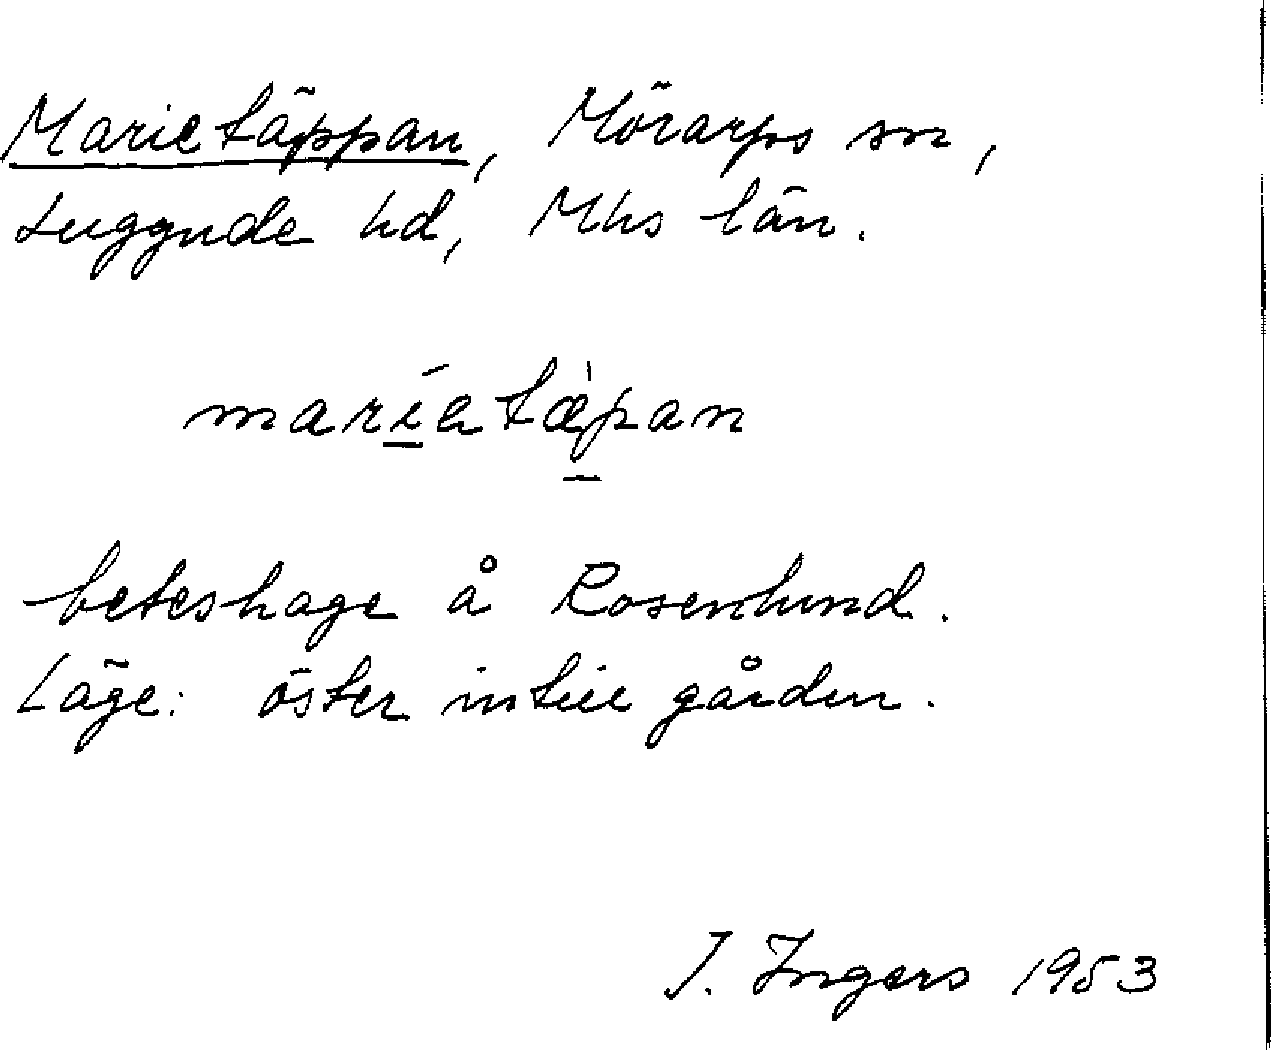 Marietäppan, Mörarps sn,
Luggude hd, Mhs län.
maríetæ̀pan
beteshage å Rosenlund.
Läge: öster intill gården.
I. Ingers 1953